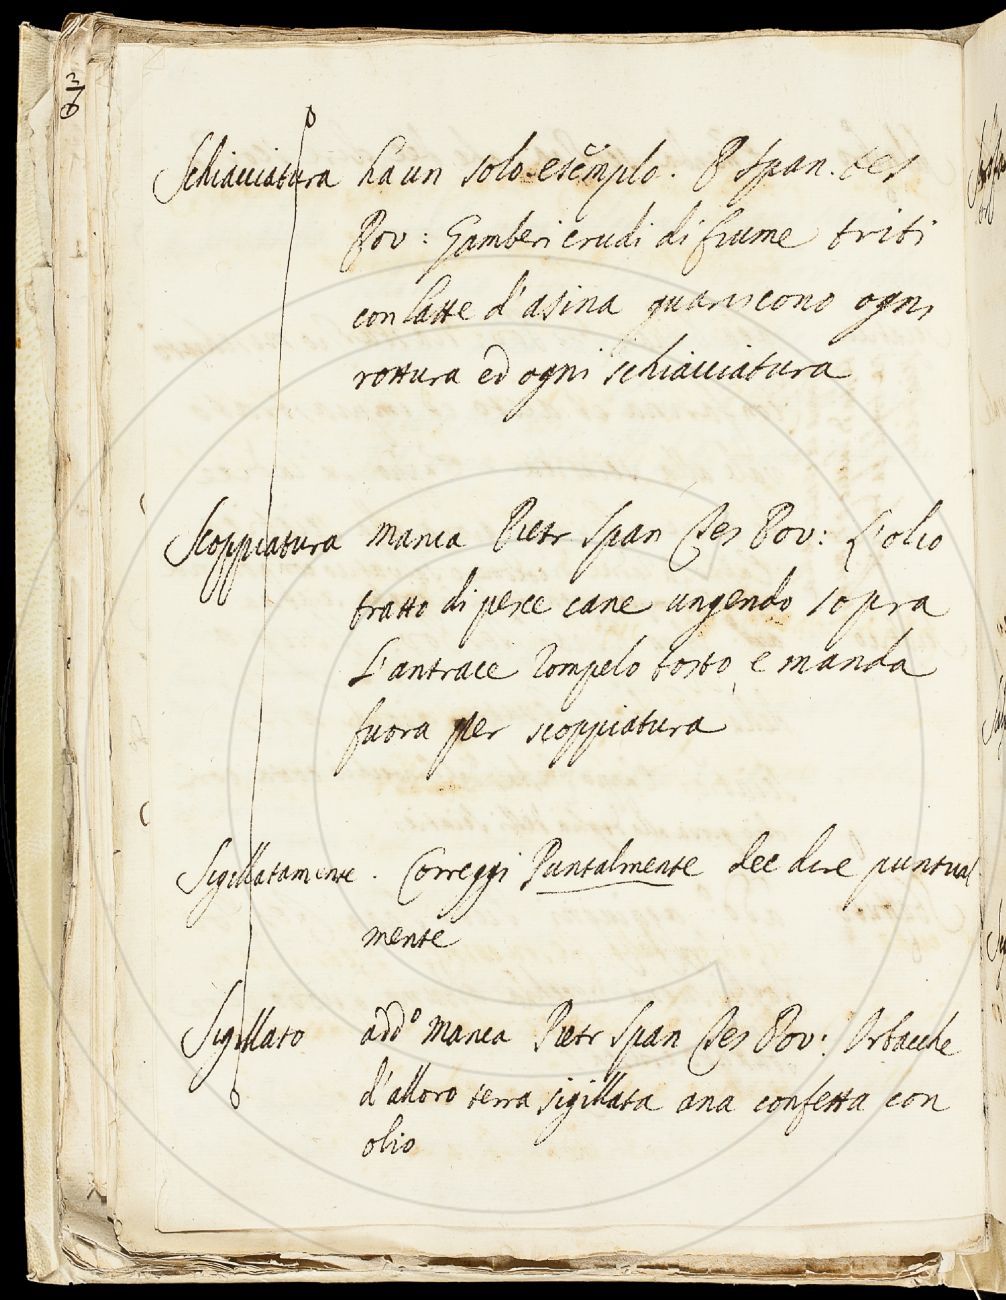 Schiacciatura ha un solo esempio. P Span. tes
Pov: Gamberi crudi di fiume triti
con latte d'asina guariscono ogni
rottura ed ogni schiacciatura
Scoppiatura manca Pietr Span Tes Pov: L'olio
tratto di pesce cane ungendo sopra
L'antrace rompelo tosto, e manda
fuora per scoppiatura
Sigillatamente. Correggi Puntalmente dee dire puntual
mente
Sigillato add.o manca Pietr Span Tes Pov: Orbacche
d'alloro terra sigillata ana confetta con
olio